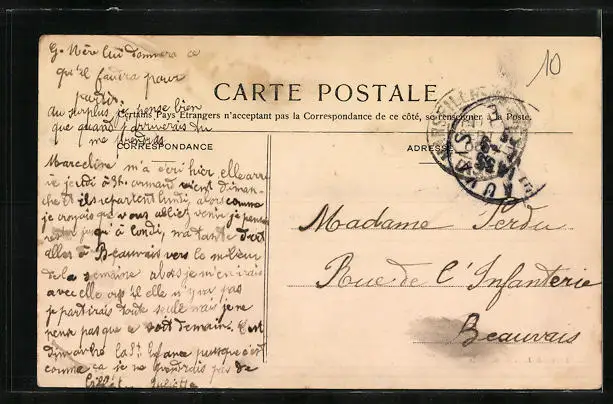 G. Mère lui donnera ce
qu'il faudra pour
partir.
au surplus je pense bien
que quand j'arriverais tu
me prendras
10
CARTE POSTALE
Certains Pays Étrangers n'acceptent pas la Correspondance de ce côté, se renseigner à la Poste.
CORRESPONDANCE
ADRESSE
Marceline m'a écri hier elle arri
ve jeudi à St. armand vient diman-
che et ils repartent lundi, alors comme
je croyais que vous alliez venir je pensais
rester jusqu'à lundi, ma tante doit
aller à Beauvais vers le milieu
de la semaine alors je m'en irais
avec elle ou si elle n'y va pas
je partirais toute seule mais je ne
peux pas que ce soit demain. C'est
dimanche la St. Enfance puisque c'est
comme ça je ne prendrais pas de
Juliette
Madame Perdu
Rue de l'Infanterie
Beauvais